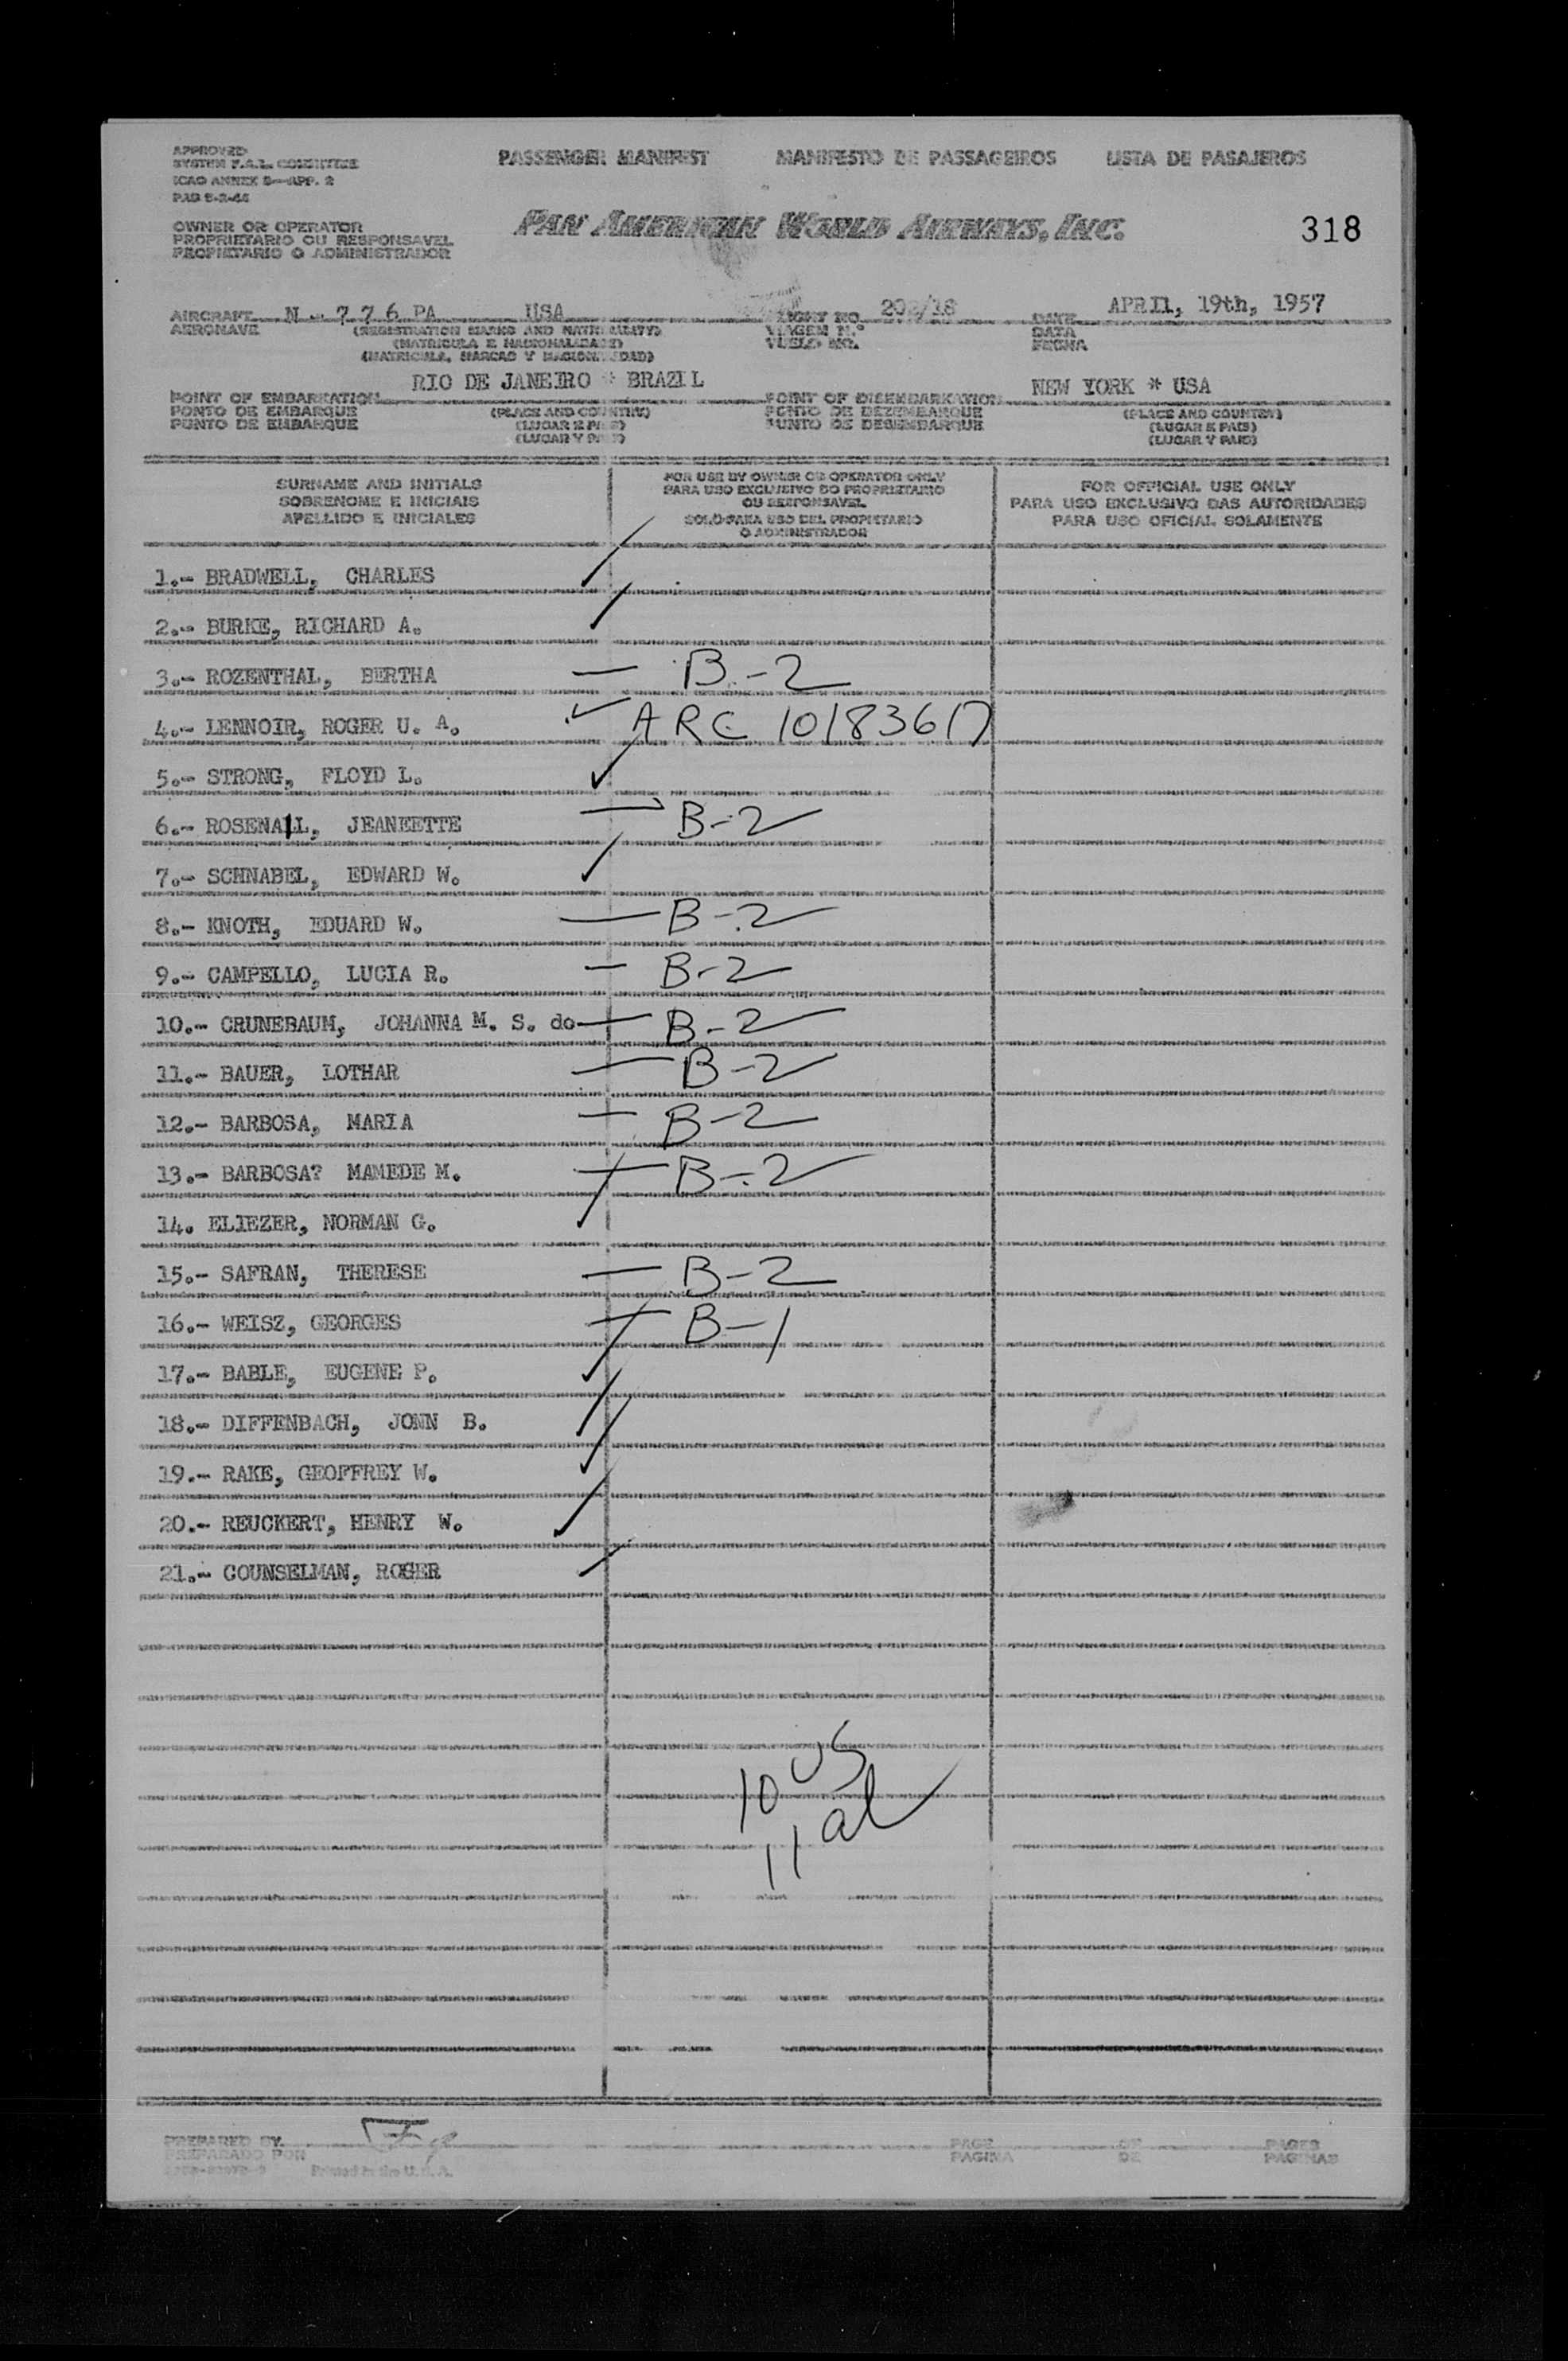 APPROVED
SYSTEM F.A.L. COMMITTEE
ICAO ANNEX 9—APP. 2
PASSENGER MANIFEST MANIFESTO DE PASSAGEIROS LISTA DE PASAJEROS
OWNER OR OPERATOR
PROPRIETARIO OU RESPONSAVEL
PROPIETARIO O ADMINISTRADOR
PAN AMERICAN WORLD AIRWAYS, INC.
318
AIRCRAFT N - 776 PA USA FLIGHT NO. 202/18 DATE APRIL, 19th, 1957
AERONAVE (REGISTRATION MARKS AND NATIONALITY) VIAGEM N.º DATA
(MATRICULA E NACIONALIDADE) VUELO NO. FECHA
(MATRICULA, MARCAS Y NACIONALIDAD)
RIO DE JANEIRO * BRAZIL NEW YORK * USA
POINT OF EMBARKATION POINT OF DISEMBARKATION
PONTO DE EMBARQUE (PLACE AND COUNTRY) PONTO DE DEZEMBARQUE (PLACE AND COUNTRY)
PUNTO DE EMBARQUE (LUGAR E PAIS) PUNTO DE DESEMBARQUE (LUGAR E PAIS)
(LUGAR Y PAIS) (LUGAR Y PAIS)
SURNAME AND INITIALS
SOBRENOME E INICIAIS
APELLIDO E INICIALES
FOR USE BY OWNER OR OPERATOR ONLY
PARA USO EXCLUSIVO DO PROPRIETARIO
OU RESPONSAVEL
SOLO PARA USO DEL PROPIETARIO
O ADMINISTRADOR
FOR OFFICIAL USE ONLY
PARA USO EXCLUSIVO DAS AUTORIDADES
PARA USO OFICIAL SOLAMENTE
1.- BRADWELL, CHARLES
2.- BURKE, RICHARD A.
3.- ROZENTHAL, BERTHA — B-2
4.- LENNOIR, ROGER U. A. ✓ ARC 10183617
5.- STRONG, FLOYD L.
6.- ROSENALL, JEANEETTE — B-2
7.- SCHNABEL, EDWARD W.
8.- KNOTH, EDUARD W. — B-2
9.- CAMPELLO, LUCIA R. — B-2
10.- CRUNEBAUM, JOHANNA M. S. do — B-2
11.- BAUER, LOTHAR — B-2
12.- BARBOSA, MARIA — B-2
13.- BARBOSA? MAMEDE M. — B-2
14. ELIEZER, NORMAN G.
15.- SAFRAN, THERESE — B-2
16.- WEISZ, GEORGES — B-1
17.- BABLE, EUGENE P.
18.- DIFFENBACH, JONN B.
19.- RAKE, GEOFFREY W.
20.- REUCKERT, HENRY W.
21.- COUNSELMAN, ROGER
10 US
11 al
PREPARED BY PAGE OF PAGES
PREPARADO POR PAGINA DE PAGINAS
Printed in the U.S.A.